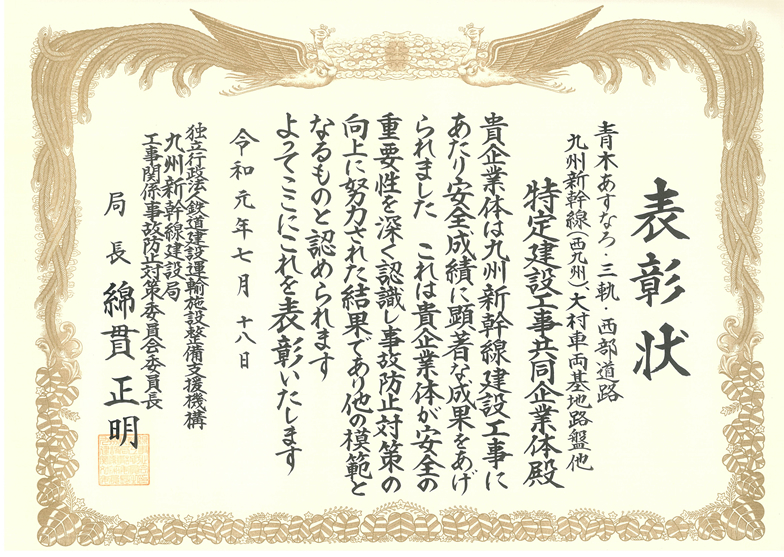 表彰状
青木あすなろ・三軌・西部道路
九州新幹線(西九州)、大村車両基地路盤他
特定建設工事共同企業体殿
貴企業体は九州新幹線建設工事に
あたり安全成績に顕著な成果をあげ
られました これは貴企業体が安全の
重要性を深く認識し事故防止対策の
向上に努力された結果であり他の模範と
なるものと認められます
よってここにこれを表彰いたします
令和元年七月十八日
独立行政法人鉄道建設・運輸施設整備支援機構
九州新幹線建設局
工事関係事故防止対策委員会委員長
局長 綿貫正明